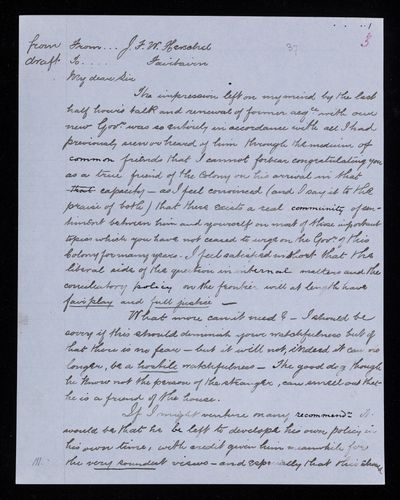 3
37
from From... J. F. W. Herschel
draft To.... Fairbairn
My dear Sir
The impression left on my mind by the last
half hour's talk and renewal of former acqce with our
new Govr. was so entirely in accordance with all I had
previously seen or heard of him through the medium of
common friends that I cannot forbear congratulating you
as a true friend of the Colony on his arrival in that
that capacity - as I feel convinced (and I say it to the
praise of both) that there exists a real community of sen-
timent between him and yourself on most of those important
topics which you have not ceased to urge on the Govt. of this
Colony for many years. I feel satisfied in short that the
liberal side of the question in internal matters and the
conciliatory policy on the frontier will at length have
fair play and full justice —
What more can it need? - I should be
sorry if this should diminish your watchfulness but of
that there is no fear - but it will not, indeed it can no
longer, be a hostile watchfulness - The good dog though
he know not the person of the stranger, can smell out that
he is a friend of the house.
If I might venture on any recommendn. it
would be that he be left to develope his own policy in
his own time, with credit given him meanwhile for
the very soundest views - and especially that this should